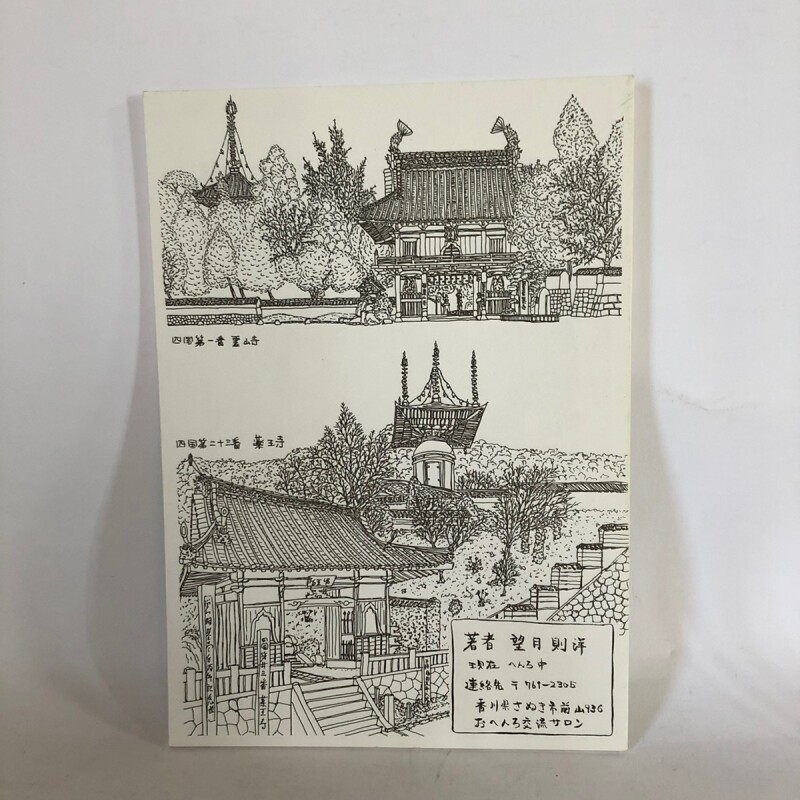 四国第一番 霊山寺
四国第二十三番 薬王寺
著者 望月則洋
現在 へんろ中
連絡先 〒769-2305
香川県さぬき市前山936
おへんろ交流サロン